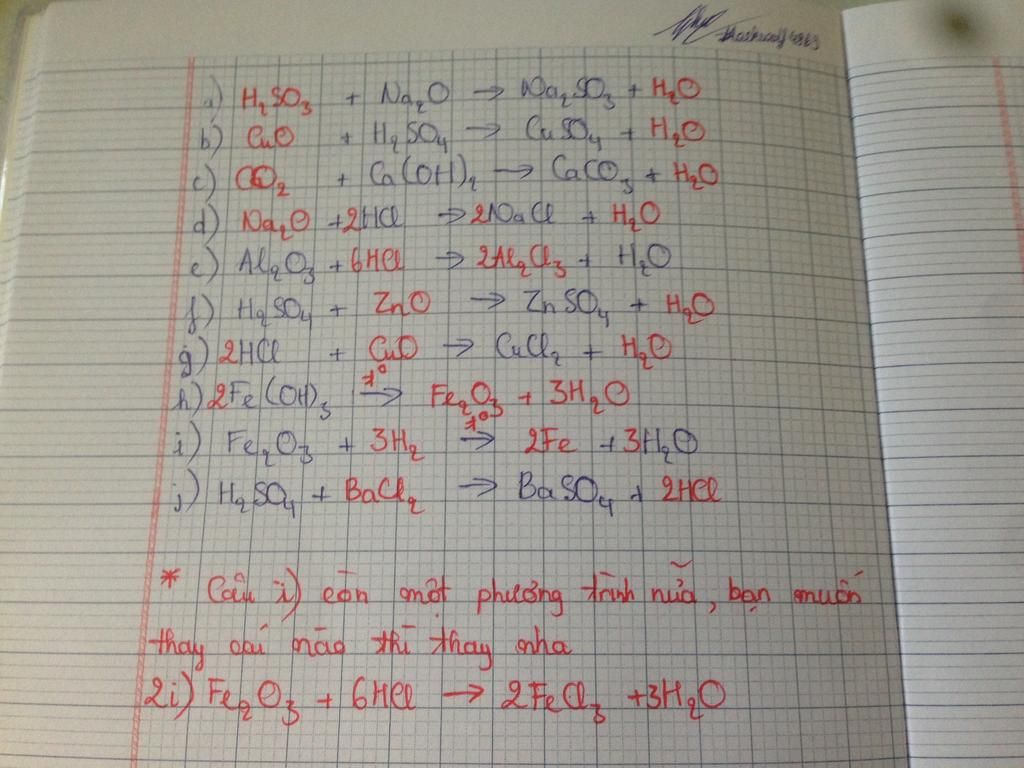 a) H₂SO₃ + Na₂O → Na₂SO₃ + H₂O
b) CuO + H₂SO₄ → CuSO₄ + H₂O
c) CO₂ + Ca(OH)₂ → CaCO₃ + H₂O
d) Na₂O + 2HCl → 2NaCl + H₂O
e) Al₂O₃ + 6HCl → 2Al₂Cl₃ + H₂O
f) H₂SO₄ + ZnO → ZnSO₄ + H₂O
g) 2HCl + CuO → CuCl₂ + H₂O
h) 2Fe(OH)₃ t° → Fe₂O₃ + 3H₂O
i) Fe₂O₃ + 3H₂ t° → 2Fe + 3H₂O
j) H₂SO₄ + BaCl₂ → BaSO₄ + 2HCl
* Câu i) còn một phương trình nữa, bạn muốn
thay cái nào thì thay nha
2i) Fe₂O₃ + 6HCl → 2FeCl₃ + 3H₂O